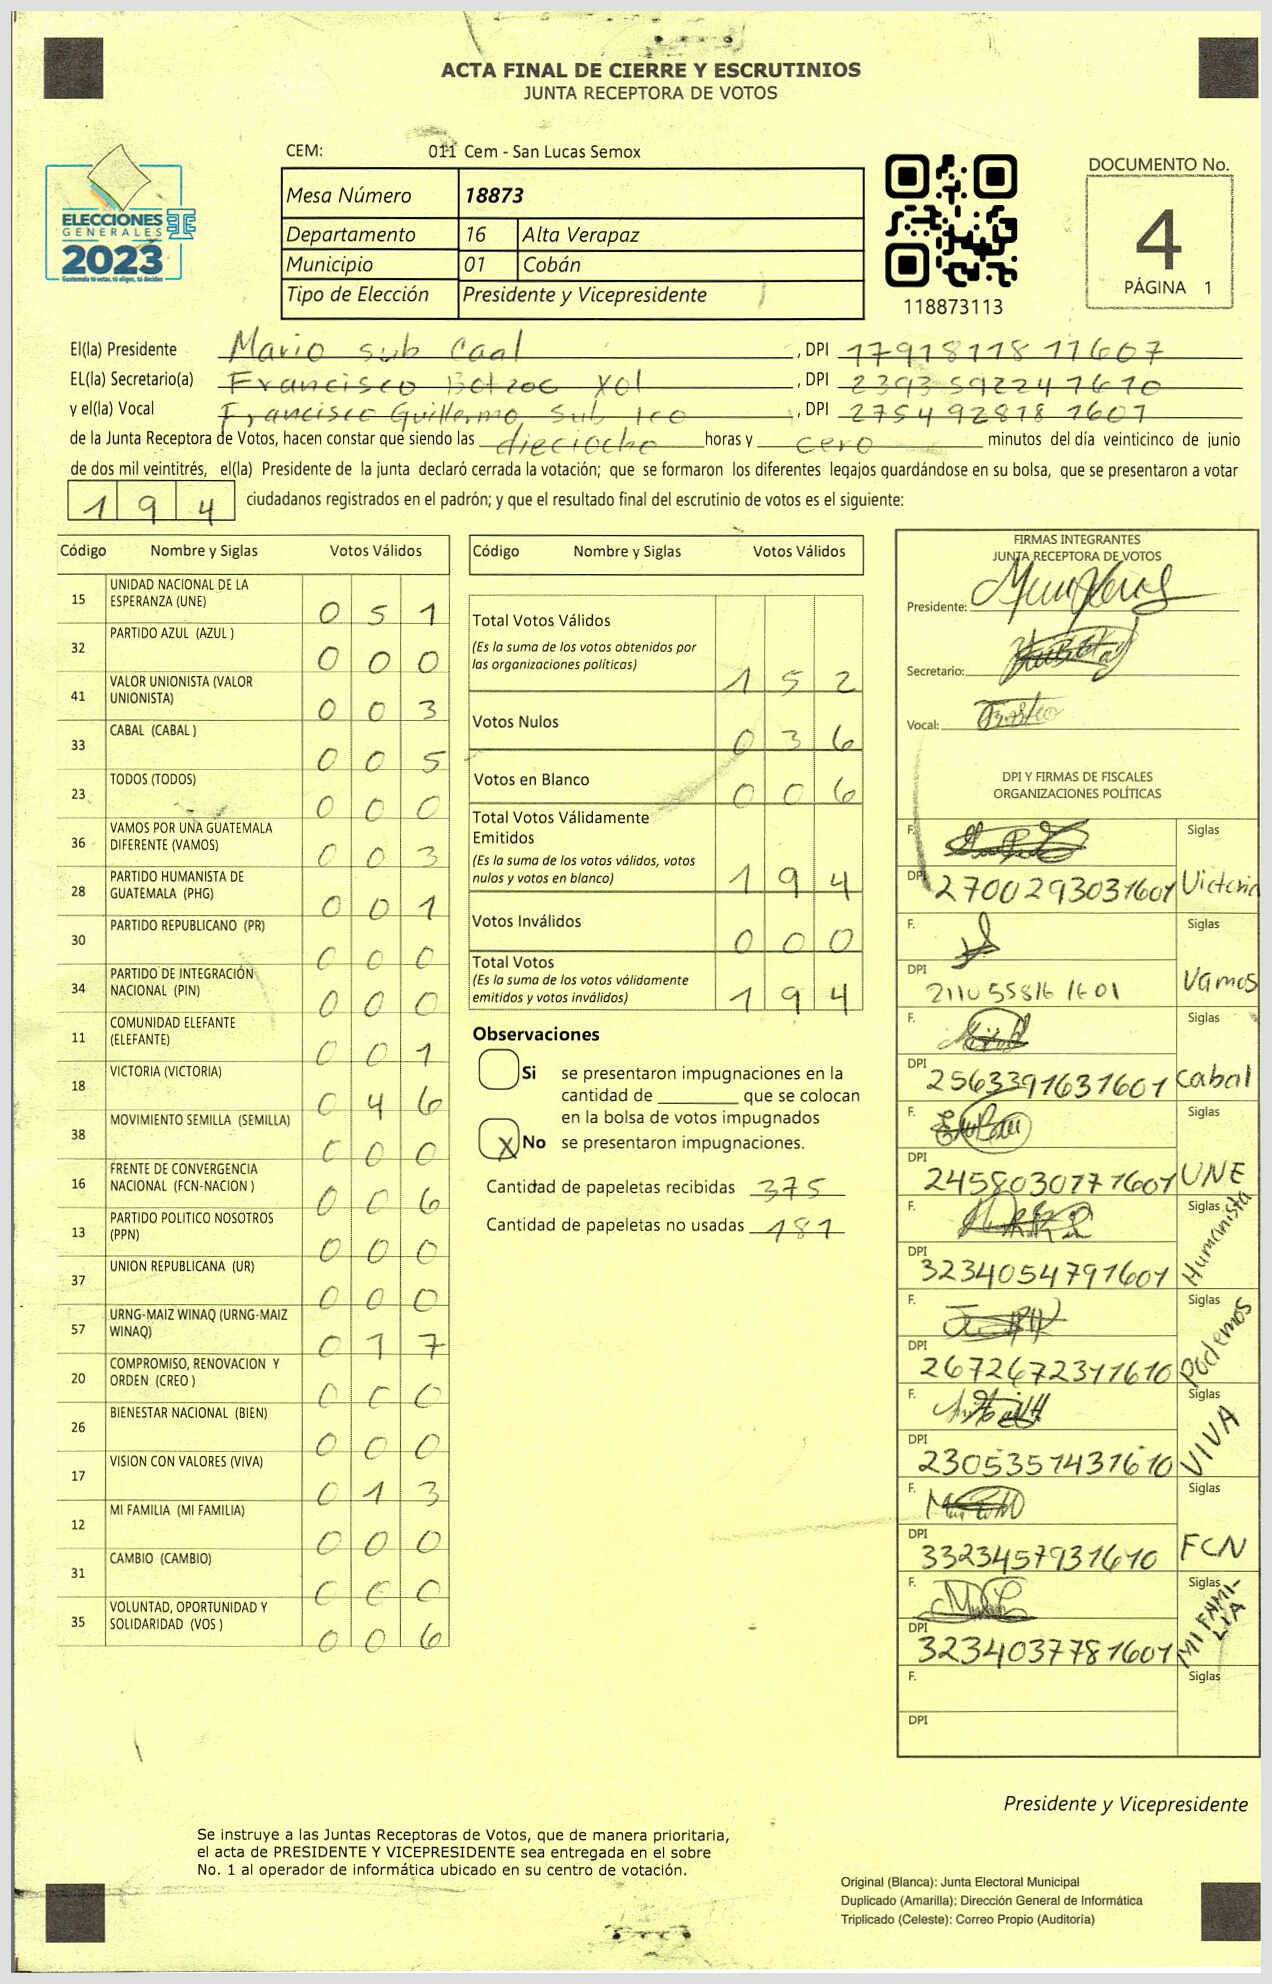 ACTA FINAL DE CIERRE Y ESCRUTINIOS
JUNTA RECEPTORA DE VOTOS
CEM: 011 Cem - San Lucas Semox
Mesa Número 18873
Departamento 16 Alta Verapaz
Municipio 01 Cobán
Tipo de Elección Presidente y Vicepresidente
ELECCIONES
GENERALES
2023
Guatemala tú votas, tú eliges, tú decides
118873113
DOCUMENTO No.
4
PÁGINA 1
El(la) Presidente Mario sub Caal , DPI 1791811811607
EL(la) Secretario(a) Francisco Botzoc Xol , DPI 2393592241610
y el(la) Vocal Francisco Guillermo Sub Ico , DPI 2754928181601
de la Junta Receptora de Votos, hacen constar que siendo las dieciocho horas y cero minutos del día veinticinco de junio
de dos mil veintitrés, el(la) Presidente de la junta declaró cerrada la votación; que se formaron los diferentes legajos guardándose en su bolsa, que se presentaron a votar
194 ciudadanos registrados en el padrón; y que el resultado final del escrutinio de votos es el siguiente:
Código Nombre y Siglas Votos Válidos
15 UNIDAD NACIONAL DE LA ESPERANZA (UNE) 051
32 PARTIDO AZUL (AZUL ) 000
41 VALOR UNIONISTA (VALOR UNIONISTA) 003
33 CABAL (CABAL ) 005
23 TODOS (TODOS) 000
36 VAMOS POR UNA GUATEMALA DIFERENTE (VAMOS) 003
28 PARTIDO HUMANISTA DE GUATEMALA (PHG) 001
30 PARTIDO REPUBLICANO (PR) 000
34 PARTIDO DE INTEGRACIÓN NACIONAL (PIN) 000
11 COMUNIDAD ELEFANTE (ELEFANTE) 001
18 VICTORIA (VICTORIA) 046
38 MOVIMIENTO SEMILLA (SEMILLA) 000
16 FRENTE DE CONVERGENCIA NACIONAL (FCN-NACION ) 006
13 PARTIDO POLITICO NOSOTROS (PPN) 000
37 UNION REPUBLICANA (UR) 000
57 URNG-MAIZ WINAQ (URNG-MAIZ WINAQ) 017
20 COMPROMISO, RENOVACION Y ORDEN (CREO ) 000
26 BIENESTAR NACIONAL (BIEN) 000
17 VISION CON VALORES (VIVA) 013
12 MI FAMILIA (MI FAMILIA) 000
31 CAMBIO (CAMBIO) 000
35 VOLUNTAD, OPORTUNIDAD Y SOLIDARIDAD (VOS ) 006
Código Nombre y Siglas Votos Válidos
Total Votos Válidos 152
(Es la suma de los votos obtenidos por
las organizaciones políticas)
Votos Nulos 036
Votos en Blanco 006
Total Votos Válidamente
Emitidos 194
(Es la suma de los votos válidos, votos
nulos y votos en blanco)
Votos Inválidos 000
Total Votos 194
(Es la suma de los votos válidamente
emitidos y votos inválidos)
Observaciones
Si se presentaron impugnaciones en la
cantidad de ________ que se colocan
en la bolsa de votos impugnados
X No se presentaron impugnaciones.
Cantidad de papeletas recibidas 375
Cantidad de papeletas no usadas 181
FIRMAS INTEGRANTES
JUNTA RECEPTORA DE VOTOS
Presidente:
Secretario:
Vocal:
DPI Y FIRMAS DE FISCALES
ORGANIZACIONES POLÍTICAS
F. Siglas
DPI 2700293031601 Victoria
F. Siglas
DPI 2110558161601 Vamos
F. Siglas
DPI 2563391631601 Cabal
F. Siglas
DPI 2458030771601 UNE
F. Siglas
DPI 3234054791601 Humanista
F. Siglas
DPI 2672672311610 Podemos
F. Siglas
DPI 2305351431610 VIVA
F. Siglas
DPI 3323457931610 FCN
F. Siglas
DPI 3234037781601 MI FAMI-LIA
F. Siglas
DPI
Presidente y Vicepresidente
Se instruye a las Juntas Receptoras de Votos, que de manera prioritaria,
el acta de PRESIDENTE Y VICEPRESIDENTE sea entregada en el sobre
No. 1 al operador de informática ubicado en su centro de votación.
Original (Blanca): Junta Electoral Municipal
Duplicado (Amarilla): Dirección General de Informática
Triplicado (Celeste): Correo Propio (Auditoría)